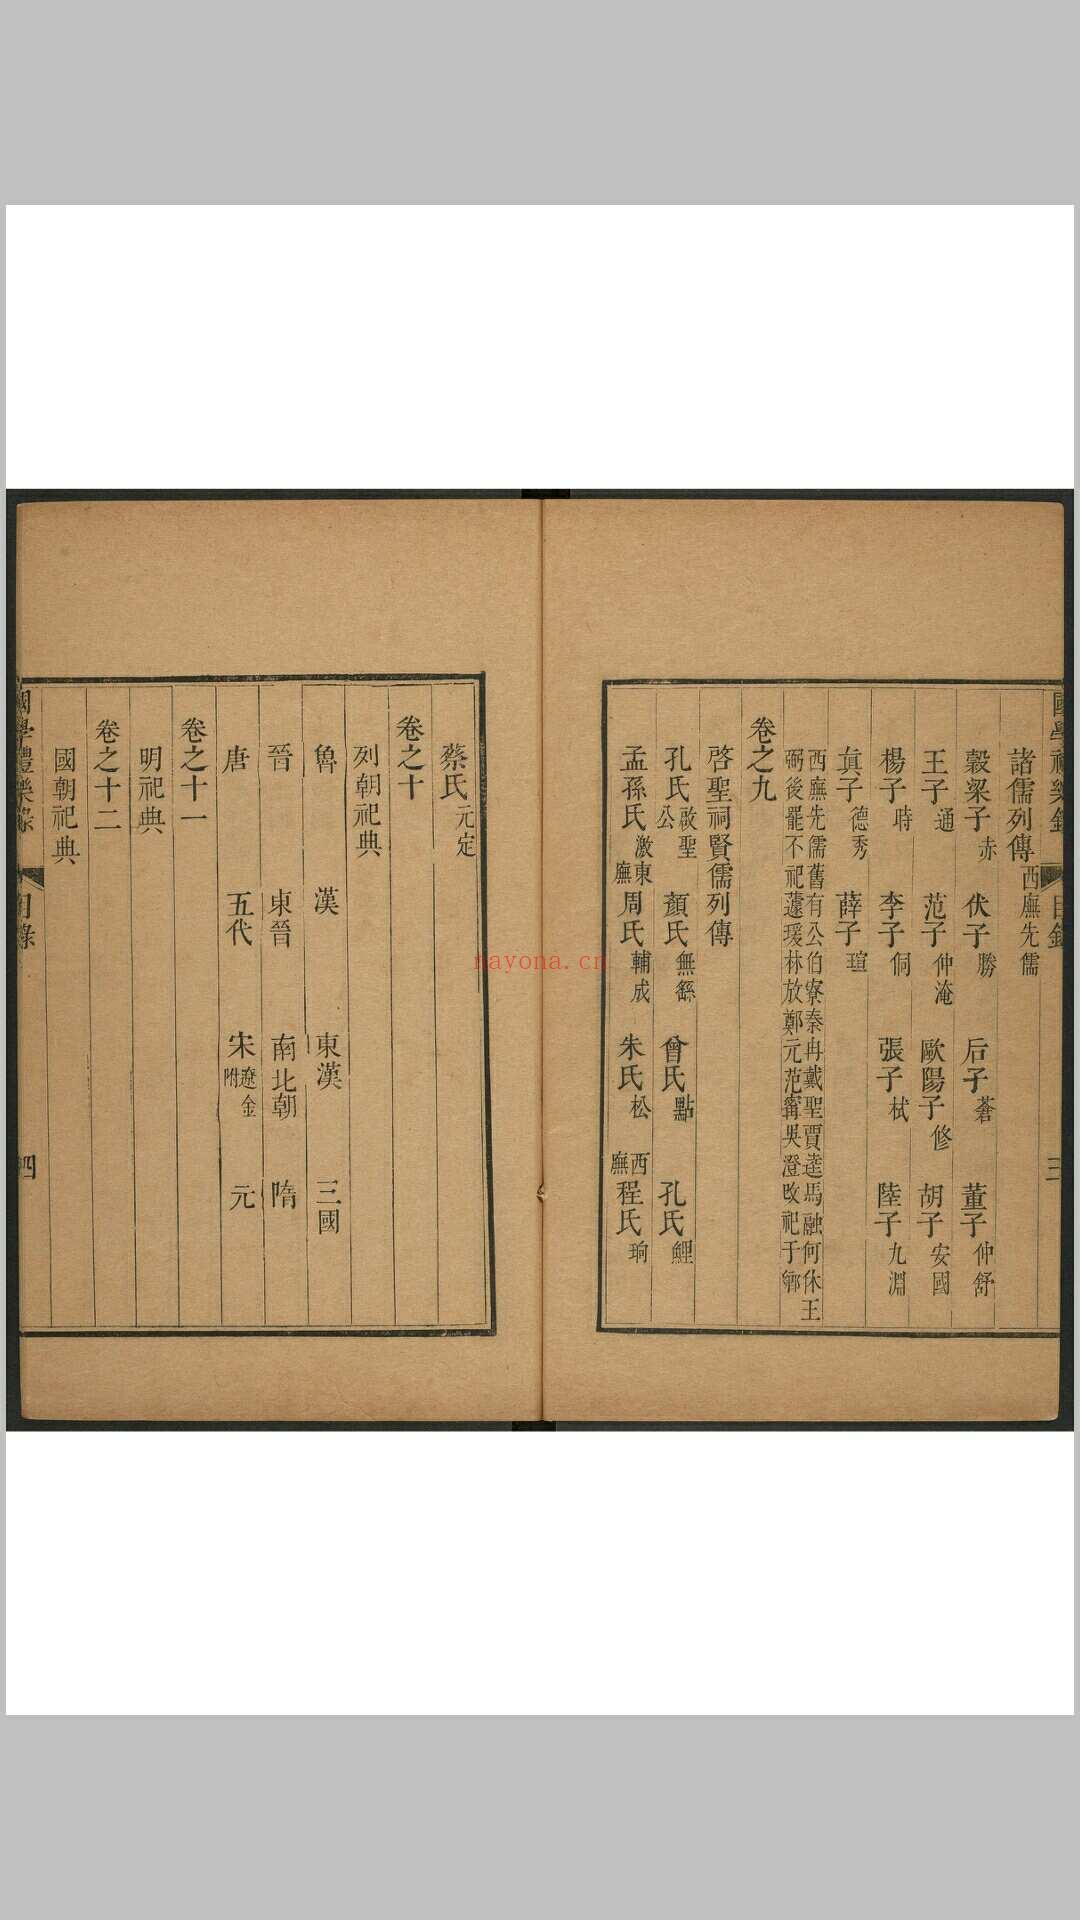 國學禮樂錄 目錄 三
諸儒列傳 西廡先儒
穀梁子 赤 伏子 勝 后子 蒼 董子 仲舒
王子 通 范子 仲淹 歐陽子 修 胡子 安國
楊子 時 李子 侗 張子 栻 陸子 九淵
真子 德秀 薛子 瑄
西廡先儒舊有公伯寮秦冉戴聖賈逵馬融何休王
弼後罷不祀蘧瑗林放鄭元范甯吳澄改祀于鄉
卷之九
啓聖祠賢儒列傳
孔氏 啟聖公 顏氏 無繇 曾氏 點 孔氏 鯉
孟孫氏 激 東廡 周氏 輔成 朱氏 松 西廡 程氏 珦
蔡氏 元定
卷之十
列朝祀典
魯 漢 東漢 三國
晉 東晉 南北朝 隋
唐 五代 宋 遼金附 元
卷之十一
明祀典
卷之十二
國朝祀典
國學禮樂錄 目錄 四
nayona.cn